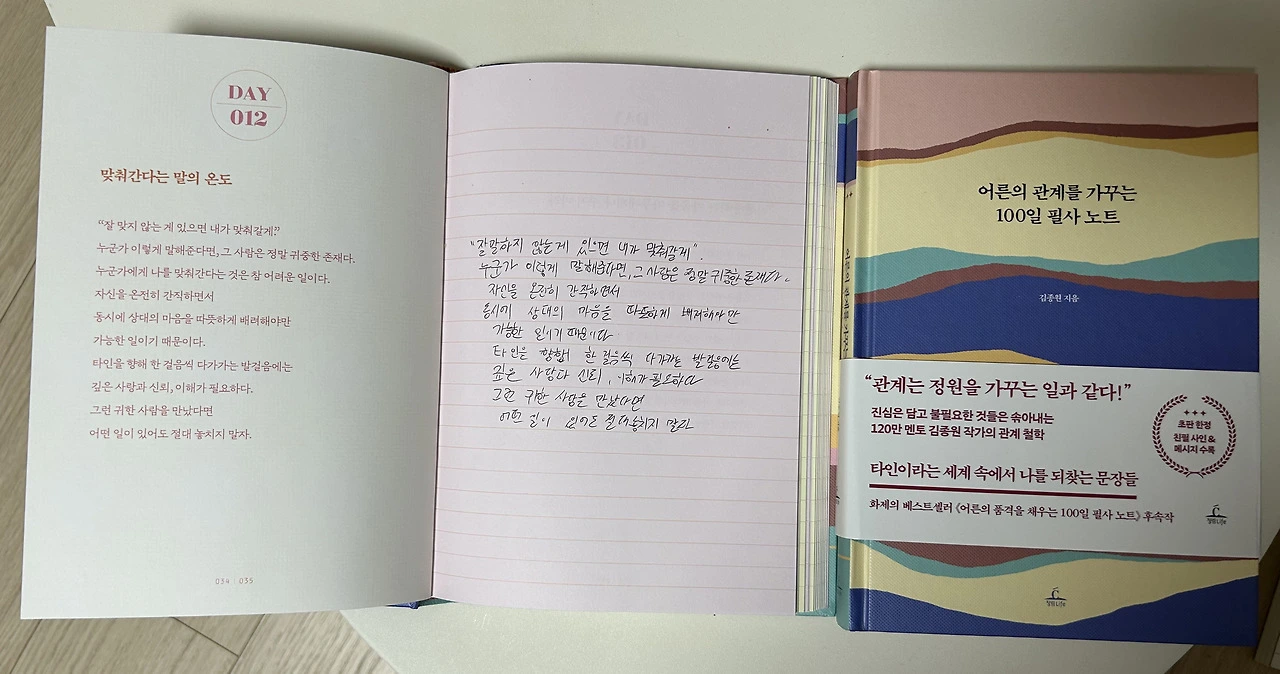 DAY
012
맞춰간다는 말의 온도
“잘 맞지 않는 게 있으면 내가 맞춰갈게.”
누군가 이렇게 말해준다면, 그 사람은 정말 귀중한 존재다.
누군가에게 나를 맞춰간다는 것은 참 어려운 일이다.
자신을 온전히 간직하면서
동시에 상대의 마음을 따뜻하게 배려해야만
가능한 일이기 때문이다.
타인을 향해 한 걸음씩 다가가는 발걸음에는
깊은 사랑과 신뢰, 이해가 필요하다.
그런 귀한 사람을 만났다면
어떤 일이 있어도 절대 놓치지 말자.
034 | 035
“잘맞하지 않는게 있으면 내가 맞춰갈게”.
누군가 이렇게 말해준다면, 그 사람은 정말 귀중한 존재다.
자신을 온전히 간직하면서
동시에 상대의 마음을 따뜻하게 배려해야만
가능한 일이기 때문이다
타인을 향해 한 걸음씩 다가가는 발걸음에는
깊은 사랑과 신뢰, 이해가 필요하다
그런 귀한 사람을 만났다면
어떤 일이 있어도 절대 놓치지 말자
어른의 관계를 가꾸는
100일 필사 노트
김종원 지음
“관계는 정원을 가꾸는 일과 같다!”
진심은 담고 불필요한 것들은 솎아내는
120만 멘토 김종원 작가의 관계 철학
타인이라는 세계 속에서 나를 되찾는 문장들
화제의 베스트셀러 《어른의 품격을 채우는 100일 필사 노트》 후속작
초판 한정
친필 사인 &
메시지 수록
청림Life
청림Life